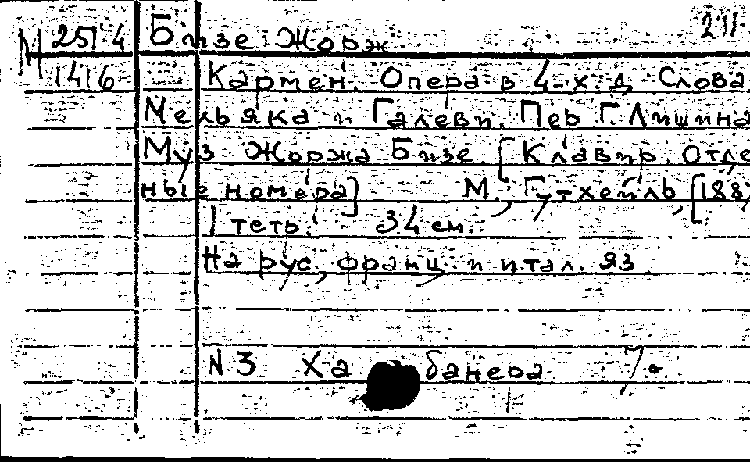 М 251/4 Бизе Жорж 211
1416 Кармен. Опера в 4-х д. Слова
Мельяка и Галеви. Пер Г. Лишина
Муз Жоржа Бизе [Клавир. Отде
ные номера] М., Гутхейль, [188
1 тетр. 34 см.
На рус, франц. и итал. яз
N 3 Ха банера 7